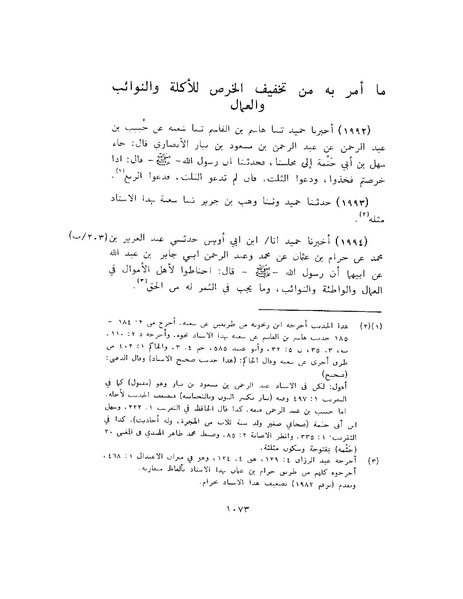 ما أمر به من تخفيف الخرص للأكلة والنوائب
والعمال
(١٩٩٢) أخبرنا حميد ثنا هاشم بن القاسم ثنا شعبة عن خُبيب بن
عبد الرحمن عن عبد الرحمن بن مسعود بن نيار الأنصاري قال: جاء
سهل بن أبي حَثْمة إلى مجلسنا، فحدثنا أن رسول الله - ﷺ - قال: اذا
خرصتم فخذوا، ودعوا الثلث. فان لم تدعو الثلث، فدعوا الربع(١).
(١٩٩٣) حدثنا حميد وهب بن جرير شعبة بهذا الاسناد
مثله(٢).
(١٩٩٤) أخبرنا حميد انا/ ابن ابي أويس حدثني عبد العزيز بن (٢٠٣/ب)
محمد عن حرام بن عثمان عن محمد وعبد الرحمن ابني جابر بن عبد الله
عن ابيهما أن رسول الله - ﷺ - قال: احتاطوا لأهل الأموال في
العمال والواطئة والنوائب، وما يجب في الثمر له من الحق(٣).
(١)(٢) هذا الحديث أخرجه ابن زنجويه من طريقين عن شعبة. أخرج مى ٢: ١٨٤ -
١٨٥ حديث هاشم بن القاسم عن شعبة بهذا الاسناد نحوه. وأخرجه د ٢: ١١٠،
ت ٣: ٣٥، ن ٥: ٣٢، وأبو عبيد ٥٨٥، حم ٤: ٣، والحاكم ١: ٤٠٢ من
طرق أخرى عن شعبة وقال الحاكم: (هذا حديث صحيح الاسناد) وقال الذهبي:
(صحيح)
أقول: لكن في الاسناد عبد الرحمن بن مسعود بن نيار وهو (مقبول) كما في
التقريب ١: ٤٩٧ وفيه (نيار بكسر النون وبالتحتانية) فيضعف الحديث لأجله.
اما خبيب بن عبد الرحمن فثقة. كذا قال الحافظ في التقريب ١: ٢٢٢. وسهل
ابن أبي حثمة (صحابي صغير ولد سنة ثلاث من الهجرة، وله أحاديث). كذا في
التقريب ١: ٣٣٥. وانظر الاصابة ٢: ٨٥. وضبط محمد طاهر الهندي في ٢٠
(حَثْمة) بمفتوحة وسكون مثلثة.
(٣) أخرجه عبد الرزاق ٤: ١٢٩، هق ٤: ١٢٤، وهو في ميزان الاعتدال ١: ٤٦٨،
أخرجوه كلهم من طريق حرام بن عثمان بهذا الاسناد بألفاظ متقاربة.
وتقدم (برقم ١٩٨٢) تضعيف هذا الاسناد بحرام.
١٠٧٣